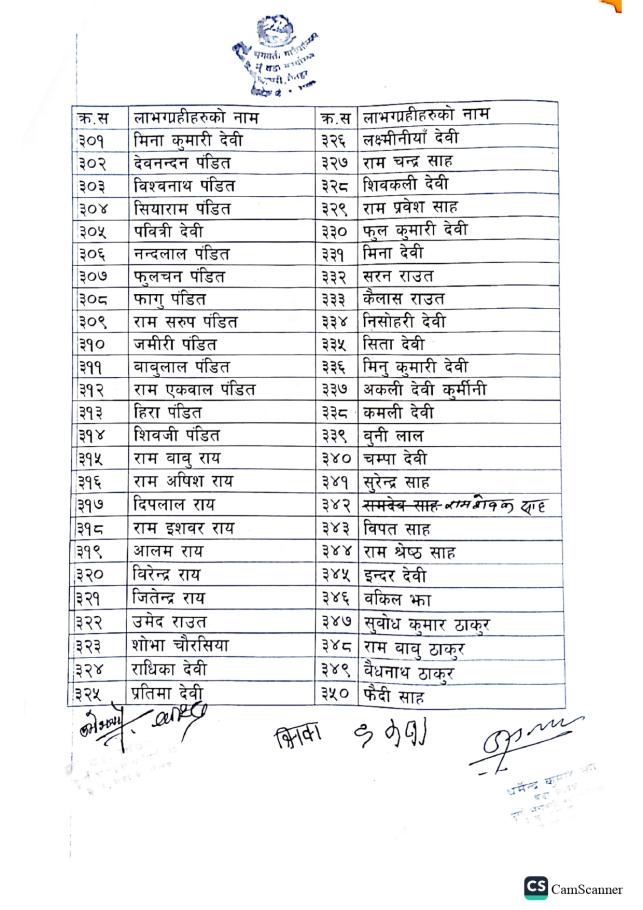 क्र.स लाभग्रहीहरुको नाम क्र.स लाभग्रहीहरुको नाम
३०१ मिना कुमारी देवी ३२६ लक्ष्मीनीयाँ देवी
३०२ देवनन्दन पंडित ३२७ राम चन्द्र साह
३०३ विश्वनाथ पंडित ३२८ शिवकली देवी
३०४ सियाराम पंडित ३२९ राम प्रवेश साह
३०५ पवित्री देवी ३३० फुल कुमारी देवी
३०६ नन्दलाल पंडित ३३१ मिना देवी
३०७ फुलचन पंडित ३३२ सरन राउत
३०८ फागु पंडित ३३३ कैलास राउत
३०९ राम सरुप पंडित ३३४ निसोहरी देवी
३१० जमीरी पंडित ३३५ सिता देवी
३११ बाबुलाल पंडित ३३६ मिनु कुमारी देवी
३१२ राम एकवाल पंडित ३३७ अकली देवी कुर्मीनी
३१३ हिरा पंडित ३३८ कमली देवी
३१४ शिवजी पंडित ३३९ बुनी लाल
३१५ राम बाबु राय ३४० चम्पा देवी
३१६ राम अषिश राय ३४१ सुरेन्द्र साह
३१७ दिपलाल राय ३४२ रामदेव साह रामसेवक साह
३१८ राम इशवर राय ३४३ विपत साह
३१९ आलम राय ३४४ राम श्रेष्ठ साह
३२० विरेन्द्र राय ३४५ इन्दर देवी
३२१ जितेन्द्र राय ३४६ वकिल झा
३२२ उमेद राउत ३४७ सुवोध कुमार ठाकुर
३२३ शोभा चौरसिया ३४८ राम बाबु ठाकुर
३२४ राधिका देवी ३४९ वैधनाथ ठाकुर
३२५ प्रतिमा देवी ३५० फैदी साह
धर्मेन्द्र कुमार
CS CamScanner